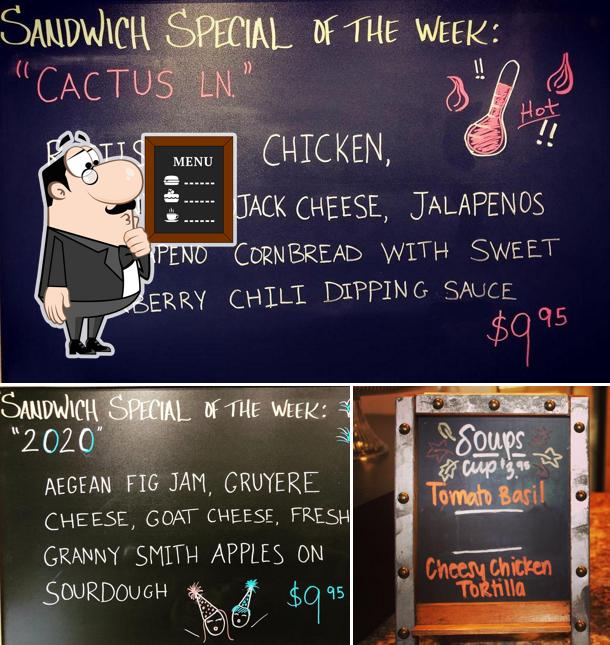 SANDWICH SPECIAL OF THE WEEK:
"CACTUS LN."
Hot
!!
!!
CHICKEN,
MENU
JACK CHEESE, JALAPENOS
CORNBREAD WITH SWEET
CHILI DIPPING SAUCE
$9.95
SANDWICH SPECIAL OF THE WEEK:
"2020"
AEGEAN FIG JAM, GRUYERE
CHEESE, GOAT CHEESE, FRESH
GRANNY SMITH APPLES ON
SOURDOUGH
$9.95
Soups
cup $3.95
Tomato Basil
Cheesy Chicken
Tortilla